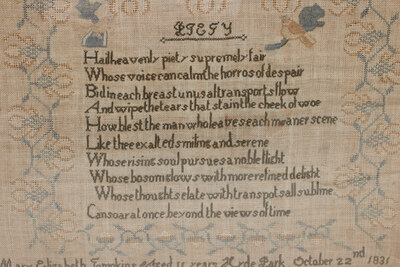 PIETY
Hail heavenly piety supremely fair
Whose voice can calm the horros of despair
Bid in each breast unusal transports flow
And wipe the tears that stain the cheek of woe
How blest the man who leaves each meaner scene
Like thee exalted smiling and serene
Whose rising soul pursues a nobler flight
Whose bosom glows with more refined delight
Whose thoughts elate with transpots all sublime
Can soar at once beyond the views of time
Mary Elizabeth Tompkins Aged 11 years Hyde Park October 22nd 1831